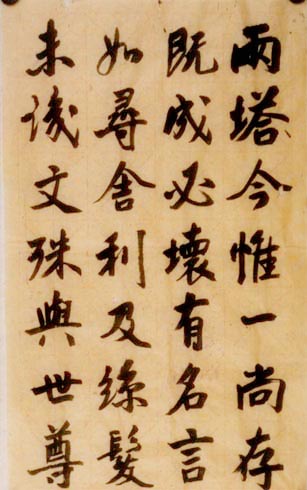 兩塔今惟一尚存
既成必壞有名言
如尋舍利及絲髮
未識文殊與世尊